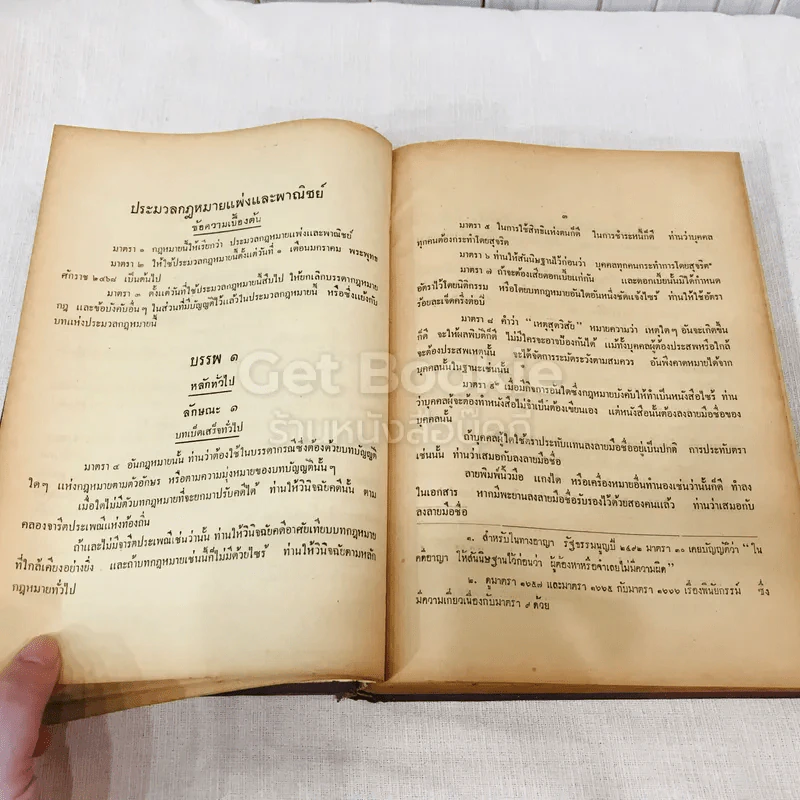 ประมวลกฎหมายแพ่งและพาณิชย์
ข้อความเบื้องต้น
มาตรา ๑ กฎหมายนี้ให้เรียกว่า ประมวลกฎหมายแพ่งและพาณิชย์
มาตรา ๒ ให้ใช้ประมวลกฎหมายนี้ตั้งแต่วันที่ ๑ เดือนมกราคม พระพุทธ
ศักราช ๒๔๖๘ เป็นต้นไป
มาตรา ๓ ตั้งแต่วันที่ใช้ประมวลกฎหมายนี้สืบไป ให้ยกเลิกบรรดากฎหมาย
กฎ และข้อบังคับอื่นๆ ในส่วนที่มีบัญญัติไว้แล้วในประมวลกฎหมายนี้ หรือซึ่งแย้งกับ
บทแห่งประมวลกฎหมายนี้
บรรพ ๑
หลักทั่วไป
ลักษณะ ๑
บทเบ็ดเสร็จทั่วไป
มาตรา ๔ อันกฎหมายนั้น ท่านว่าต้องใช้ในบรรดากรณีซึ่งต้องด้วยบทบัญญัติ
ใดๆ แห่งกฎหมายตามตัวอักษร หรือตามความมุ่งหมายของบทบัญญัตินั้นๆ
เมื่อใดไม่มีตัวบทกฎหมายที่จะยกมาปรับคดีได้ ท่านให้วินิจฉัยคดีนั้น ตาม
คลองจารีตประเพณีแห่งท้องถิ่น
ถ้าและไม่มีจารีตประเพณีเช่นว่านั้น ท่านให้วินิจฉัยคดีอาศัยเทียบบทกฎหมาย
ที่ใกล้เคียงอย่างยิ่ง และถ้าบทกฎหมายเช่นนี้ก็ไม่มีด้วยไซร้ ท่านให้วินิจฉัยตามหลัก
กฎหมายทั่วไป
๓
มาตรา ๕ ในการใช้สิทธิแห่งตนก็ดี ในการชำระหนี้ก็ดี ท่านว่าบุคคล
ทุกคนต้องกระทำโดยสุจริต
มาตรา ๖ ท่านให้สันนิษฐานไว้ก่อนว่า บุคคลทุกคนกระทำการโดยสุจริต
มาตรา ๗ ถ้าจะต้องเสียดอกเบี้ยแก่กัน และดอกเบี้ยนั้นมิได้กำหนด
อัตราไว้โดยนิติกรรม หรือโดยบทกฎหมายอันใดอันหนึ่งชัดแจ้งไซร้ ท่านให้ใช้อัตรา
ร้อยละเจ็ดครึ่งต่อปี
มาตรา ๘ คำว่า "เหตุสุดวิสัย" หมายความว่า เหตุใดๆ อันจะเกิดขึ้น
ก็ดี จะให้ผลพิบัติก็ดี ไม่มีใครจะอาจป้องกันได้ แม้ทั้งบุคคลผู้ต้องประสพหรือใกล้
จะต้องประสพเหตุนั้น จะได้จัดการระมัดระวังตามสมควร อันพึงคาดหมายได้จาก
บุคคลนั้นในฐานะเช่นนั้น
มาตรา ๙ เมื่อมีกิจการอันใดซึ่งกฎหมายบังคับให้ทำเป็นหนังสือไซร้ ท่าน
ว่าบุคคลผู้จะต้องทำหนังสือไม่จำเป็นต้องเขียนเอง แต่หนังสือนั้นต้องลงลายมือชื่อของ
บุคคลนั้น
ถ้าบุคคลผู้ใดใช้ตราประทับแทนลงลายมือชื่ออยู่เป็นปกติ การประทับตรา
เช่นนั้น ท่านว่าเสมอกับลงลายมือชื่อ
ลายพิมพ์นิ้วมือ แกงได หรือเครื่องหมายอื่นทำนองเช่นว่านั้นก็ดี ทำลง
ในเอกสาร หากมีพะยานลงลายมือชื่อรับรองไว้ด้วยสองคนแล้ว ท่านว่าเสมอกับ
ลงลายมือชื่อ
๑. สำหรับในทางอาญา รัฐธรรมนูญปี ๒๔๙๒ มาตรา ๓๐ เคยบัญญัติว่า "ใน
คดีอาญา ให้สันนิษฐานไว้ก่อนว่า ผู้ต้องหาหรือจำเลยไม่มีความผิด"
๒. ดูมาตรา ๑๖๕๗ และมาตรา ๑๖๖๕ กับมาตรา ๑๖๖๖ เรื่องพินัยกรรม์ ซึ่ง
มีความเกี่ยวเนื่องกับมาตรา ๙ ด้วย
Get Bookie
ร้านหนังสือเก็ต